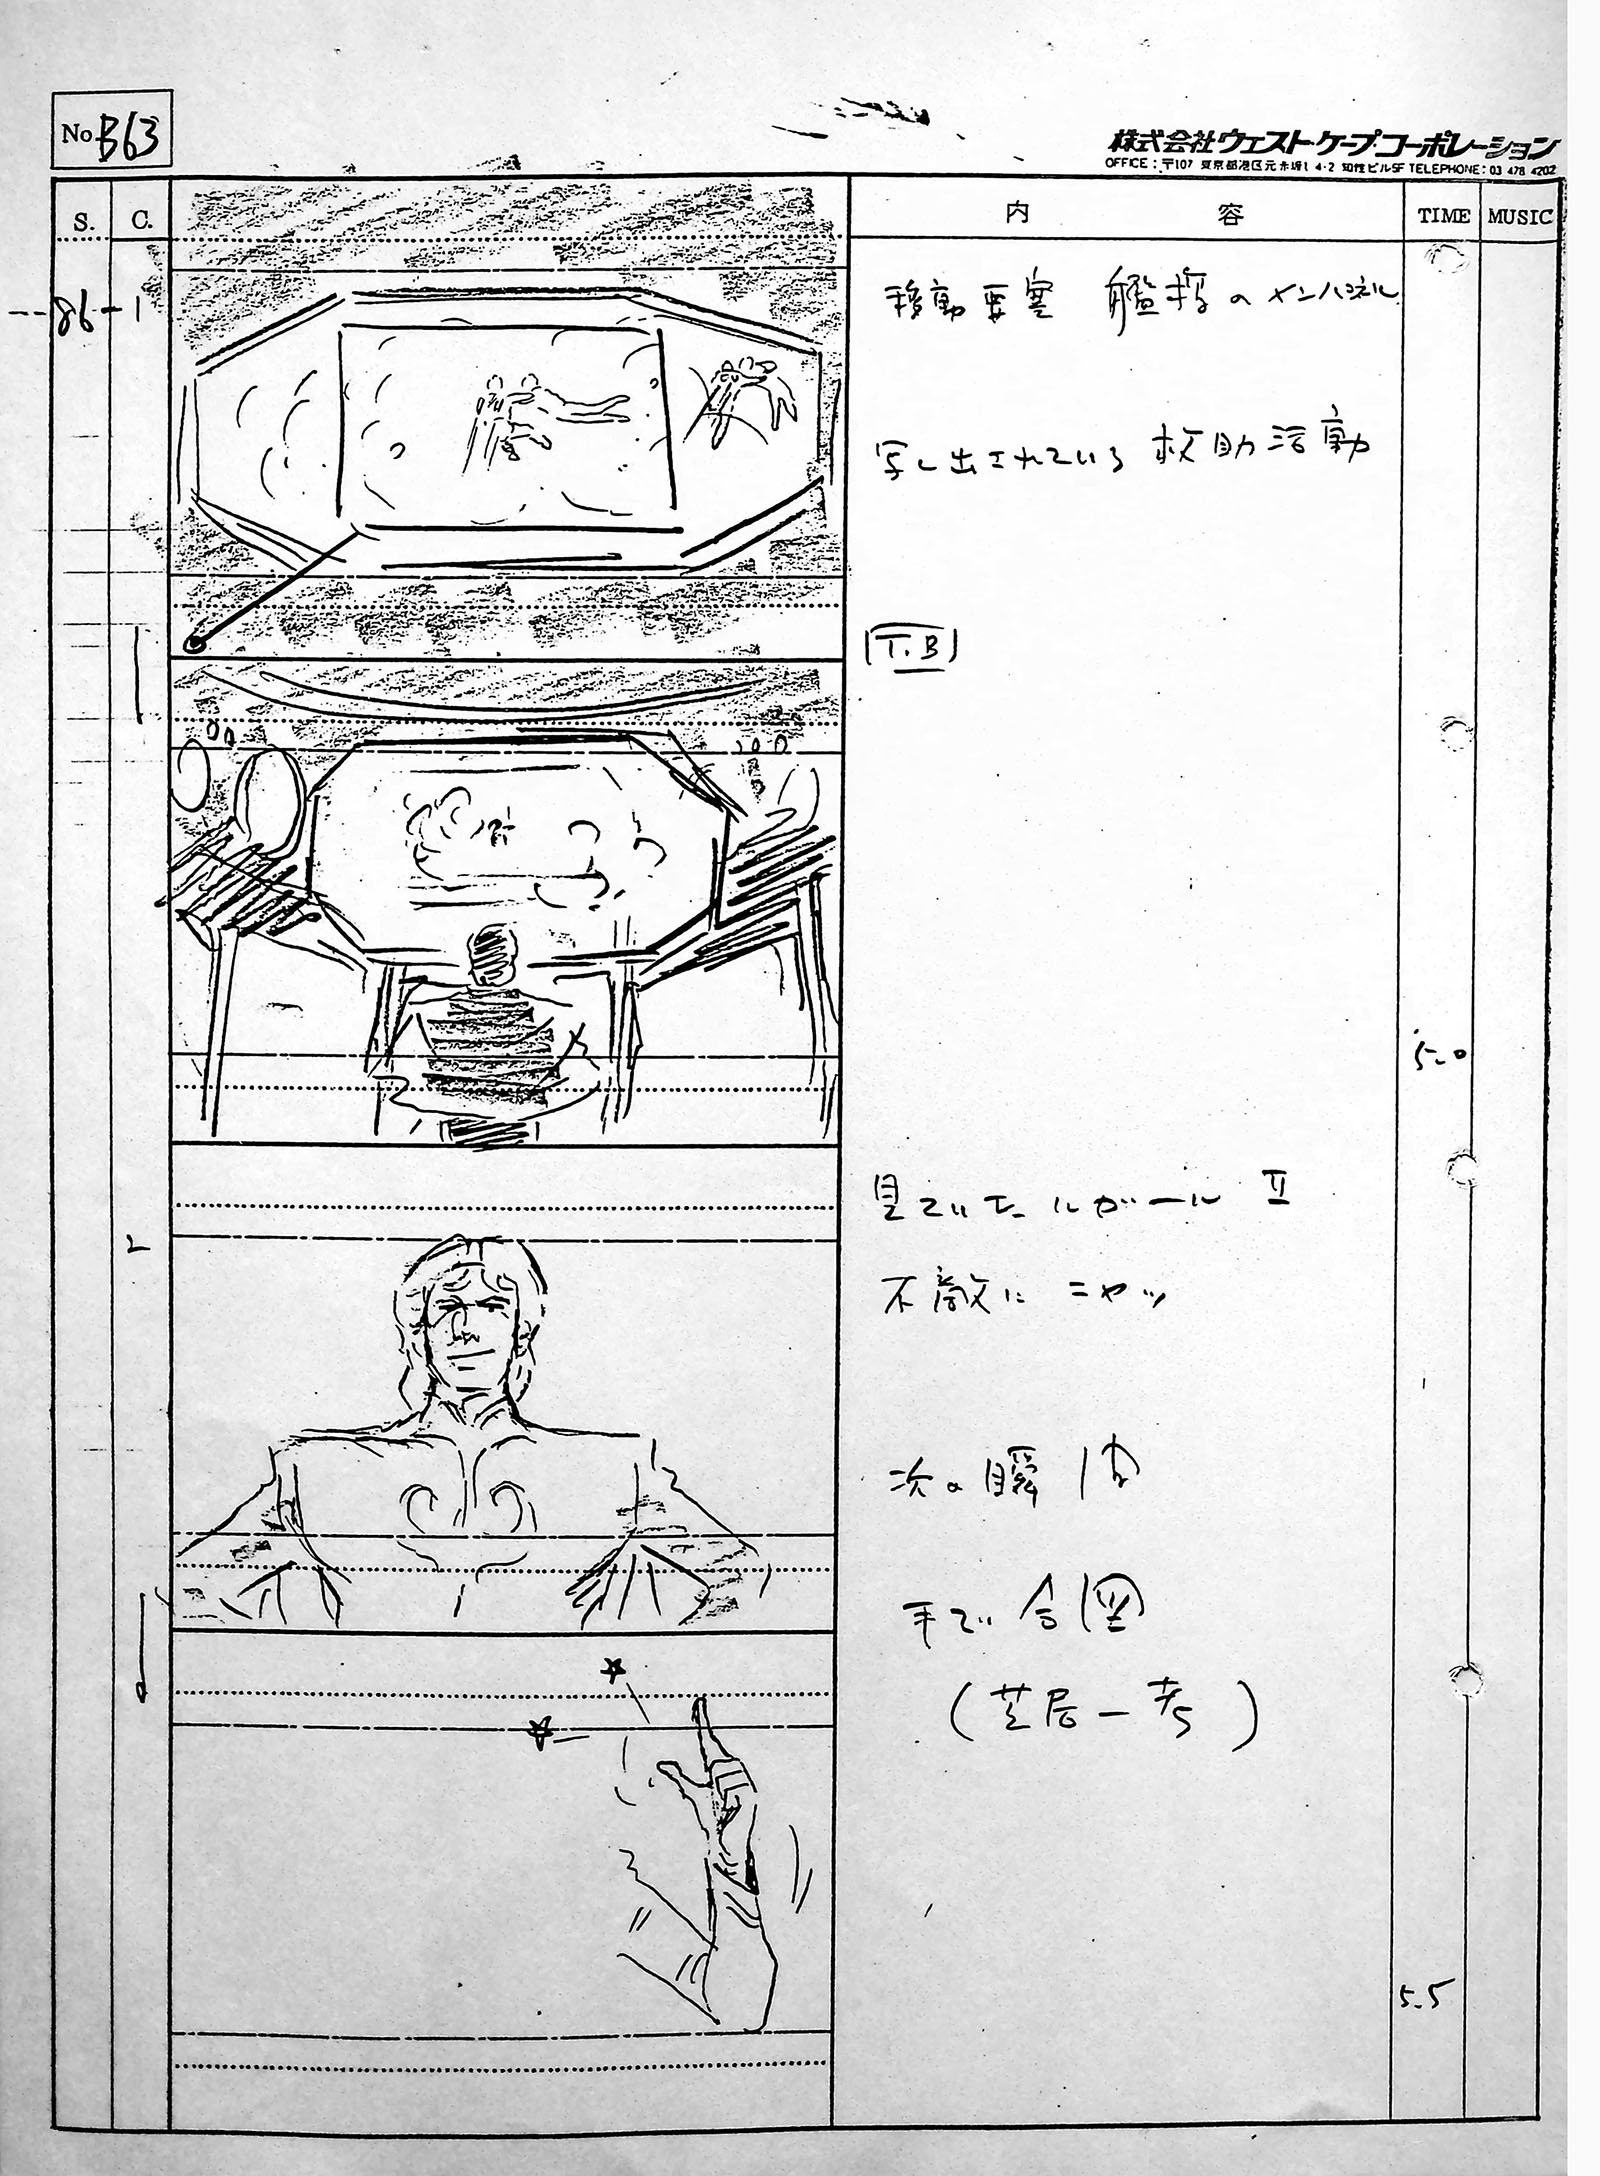 No. B63
株式会社ウェスト・ケープ・コーポレーション
OFFICE:〒107 東京都港区元赤坂1 4-2 知性ビル5F TELEPHONE:03 478 4202
S. C. 内容 TIME MUSIC
86-1 移動要塞 艦橋のメインパネル
写し出されている救助活動
T.B
5.0
2 見ていたルガール II
不敵に ニヤッ
次の瞬間
手で合図
(芝居一考)
5.5